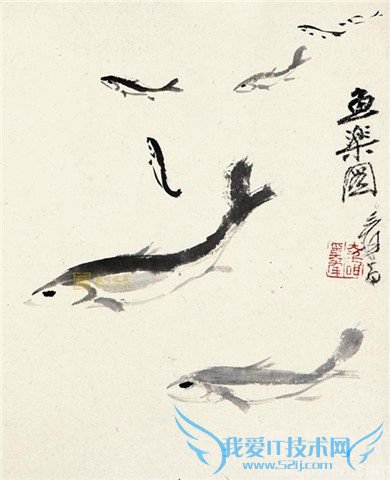 鱼樂圖
我爱IT技术网
www.52ij.com